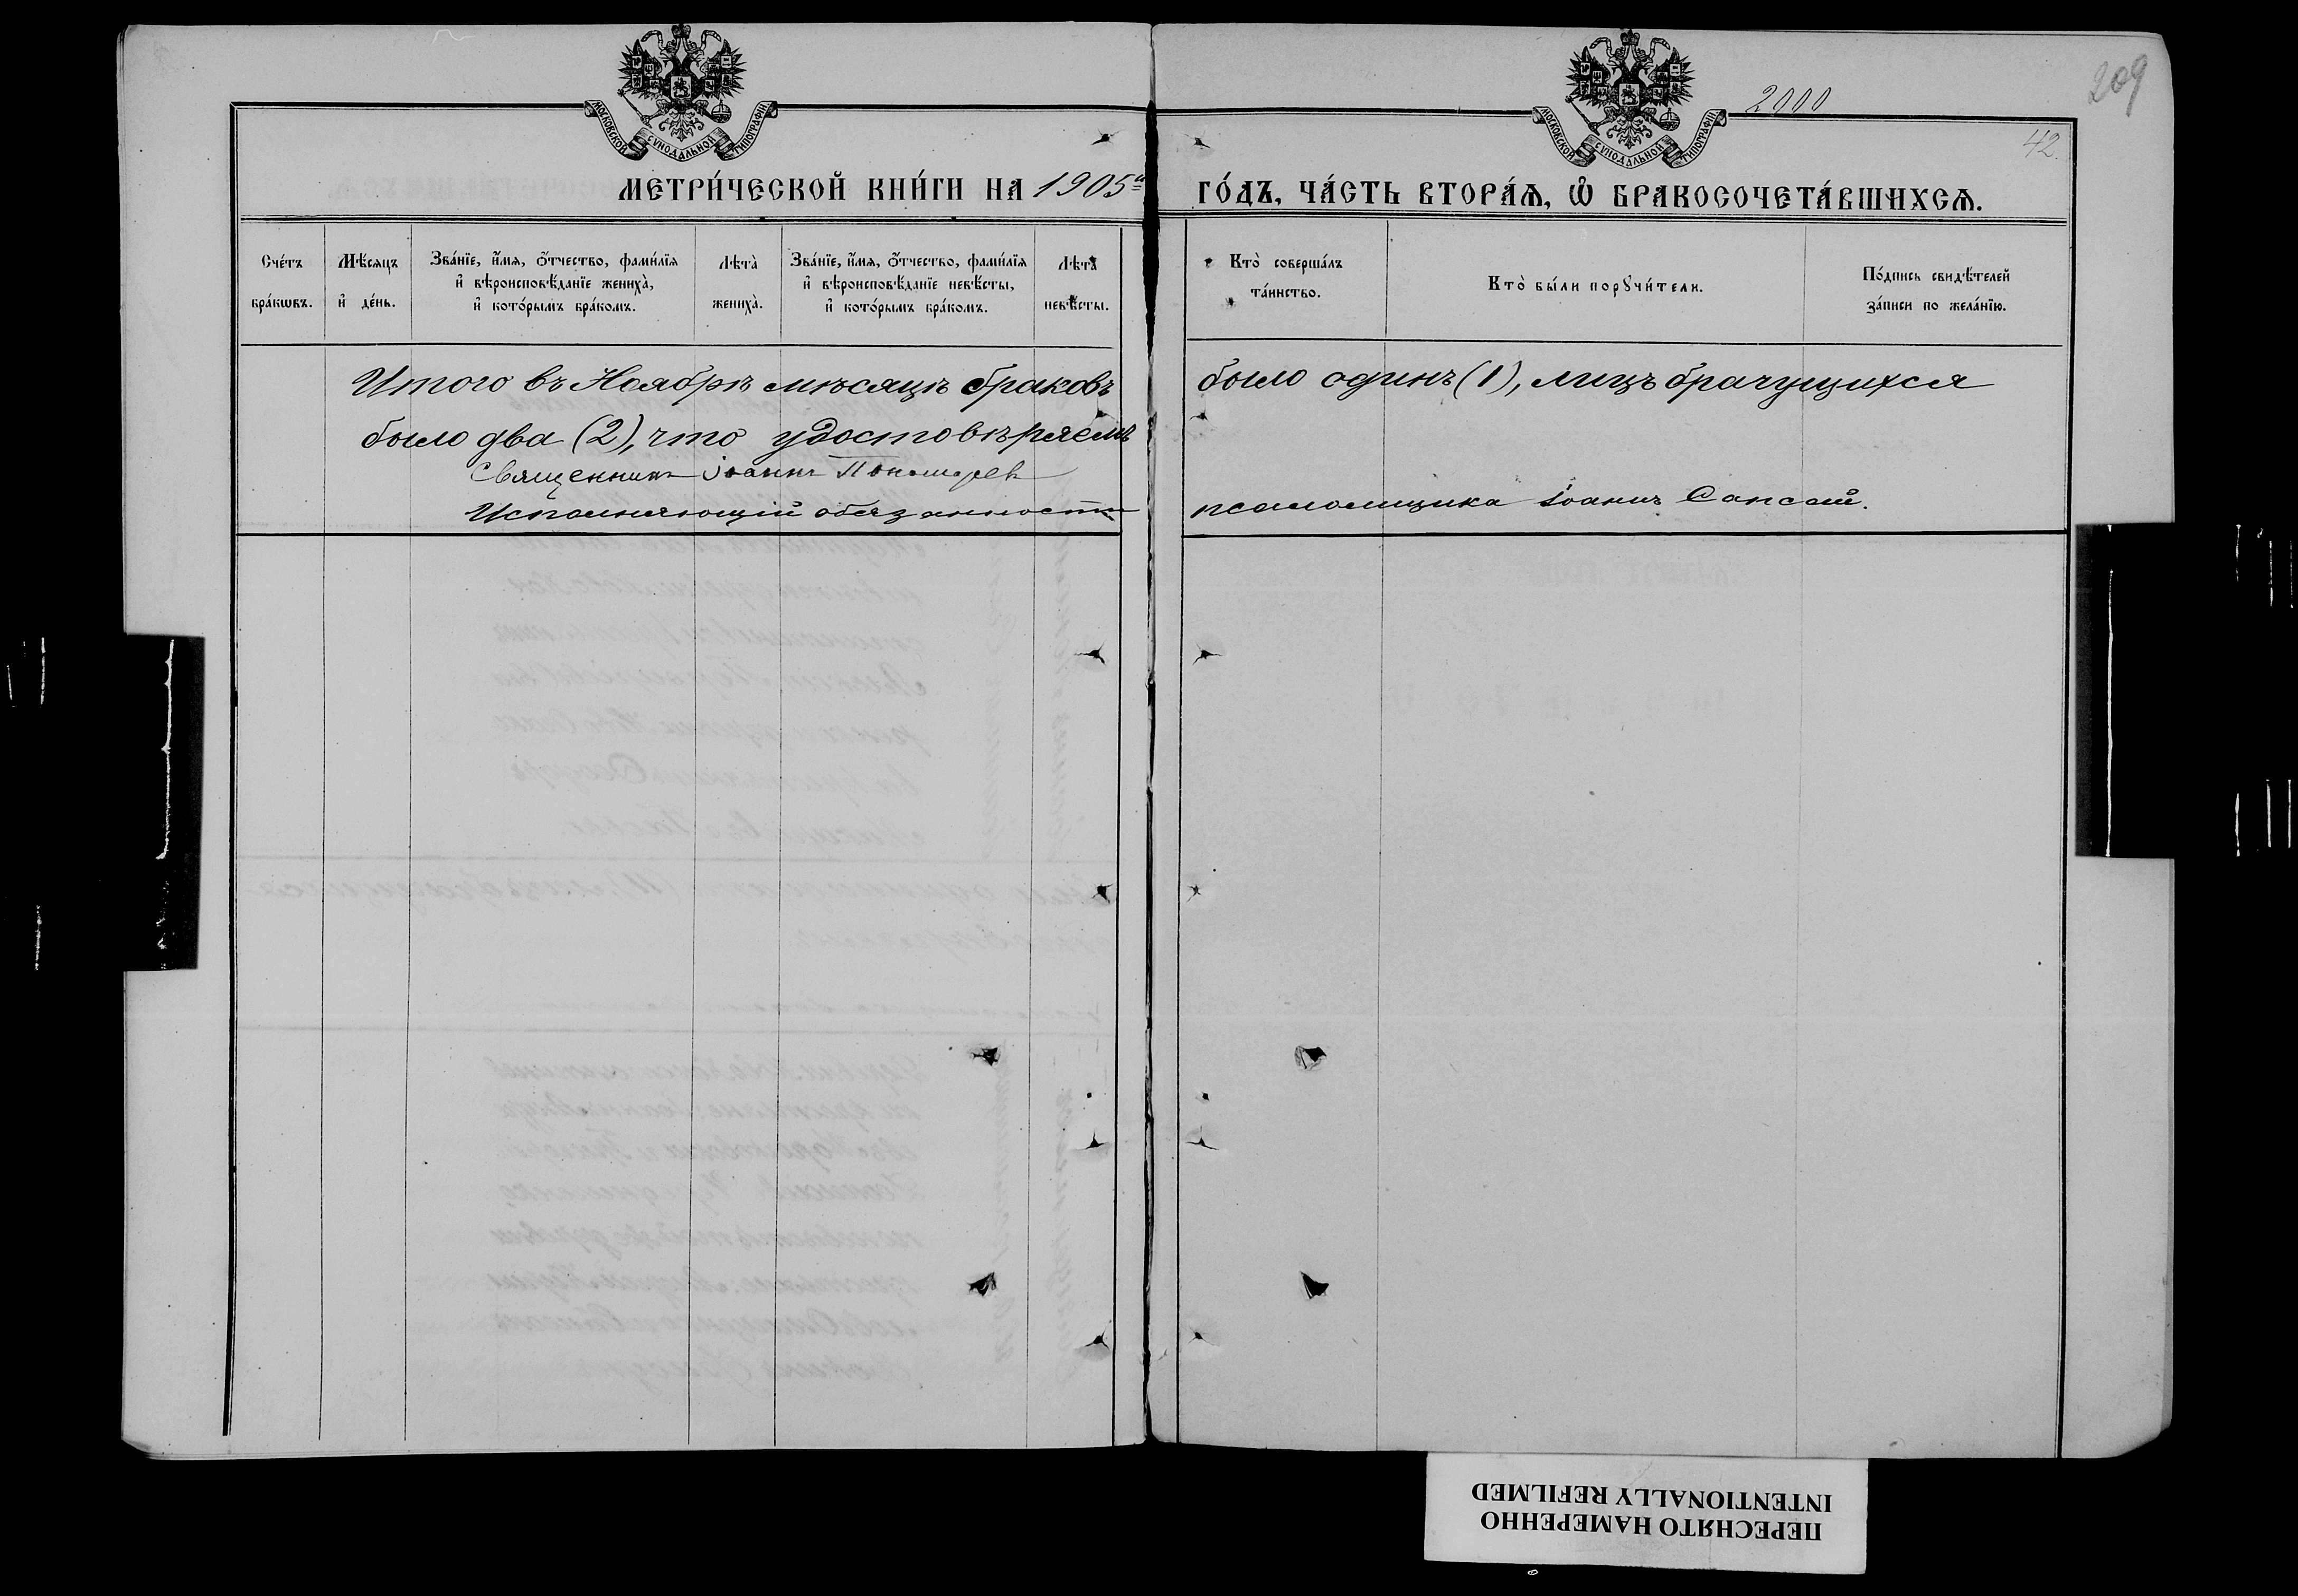 МОСКОВСКОЙ СУНОДАЛЬНОЙ ТИПОГРАФІИ
МОСКОВСКОЙ СУНОДАЛЬНОЙ ТИПОГРАФІИ
2000
209
42.
МЕТРИ́ЧЕСКОЙ КНИ́ГИ НА 1905й ГО́ДЪ, ЧА́СТЬ ВТОРА́Ѧ, Ѽ БРАКОСОЧЕТА́ВШИХСѦ.
Сче́тъ бра́кѡвъ.
Мѣ́сяцъ и҆ де́нь.
Зва́нїе, и҆́мя, ѻ҆́тчество, фами́лїя и҆ вѣроисповѣ́данїе жениха̀, и҆ кото́рымъ бра́комъ.
Лѣта̀ жениха̀.
Зва́нїе, и҆́мя, ѻ҆́тчество, фами́лїя и҆ вѣроисповѣ́данїе невѣ́сты, и҆ кото́рымъ бра́комъ.
Лѣта̀ невѣ́сты.
Кто̀ соверша́лъ та́инство.
Кто̀ бы́ли порꙋчи́тели.
По́дпись свидѣ́телей за́писи по жела́нїю.
Итого въ Ноябрѣ мѣсяцѣ браковъ было одинъ (1), лицъ брачущихся
было два (2), что удостовѣряемъ
Священникъ Іоаннъ Пономарев
Исполняющій обязанности псаломщика Іоаннъ Сапсай.
ПЕРЕСНЯТО НАМЕРЕННО
INTENTIONALLY REFILMED